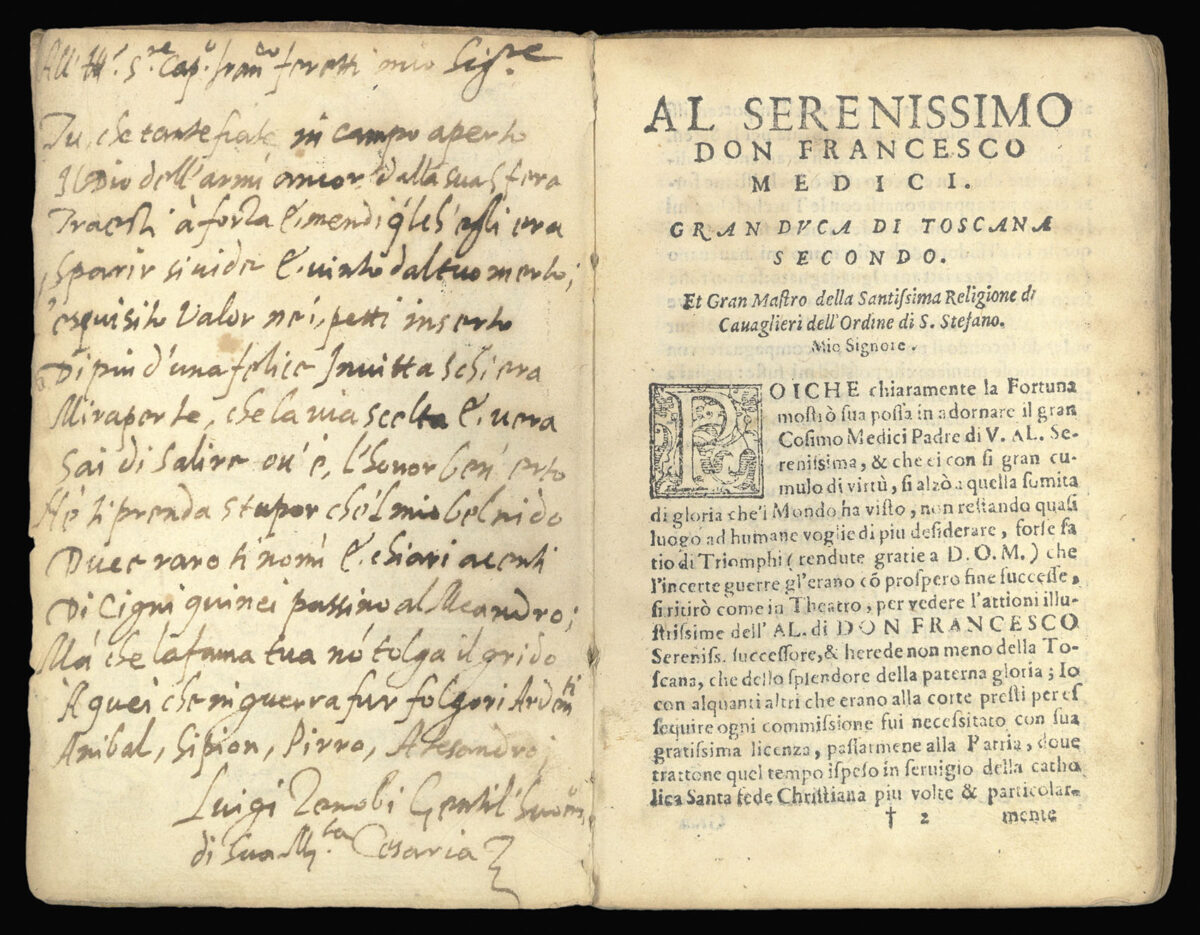 All' Ill.e S.re Cap.o fran.co feretti mio Sig.re
Tu, che tante fiate in campo aperto
Il Dio dell'armi ancor dalla sua sfera
Traesti à forza &
sparir si vide & vinto dal tuo merto;
esquisito Valor nei petti inserto
Di piu d'una felice Invitta schiera
Mira per te, che la via scelta & vera
Sai di salire ov' è, l'honor ben' erto
Nè ti prenda stupor che'l mio bel nido
Due e raro ti nomi & chiari acenti
Di Cigni quinci passino al Meandro;
Mà che la fama tua nō tolga il grido
A quei che in guerra fur folgori Ardenti
Anibal, Sipion, Pirro, Alesandro;
Luigi Zenobi Gentil'huomo
di Sua M.ta Cesaria
AL SERENISSIMO
DON FRANCESCO
MEDICI.
GRAN DVCA DI TOSCANA
SECONDO.
Et Gran Maſtro della Santiſsima Religione di
Cauaglieri dell'Ordine di S. Stefano.
Mio Signore.
POICHE chiaramente la Fortuna
moſtrò ſua poſſa in adornare il gran
Coſimo Medici Padre di V. AL. Se-
reniſsima, & che ei con ſi gran cu-
mulo di virtù, ſi alzò a quella ſumita
di gloria che'l Mondo ha viſto, non reſtando quaſi
luogo ad humane voglie di piu deſiderare, forſe ſa
tio di Triomphi (rendute gratie a D. O. M.) che
l'incerte guerre gl'erano cō proſpero fine ſucceſſe,
ſi ritirò come in Theatro, per vedere l'attioni illu-
ſtriſsime dell' AL. di DON FRANCESCO
Sereniſs. ſucceſſore, & herede non meno della To-
ſcana, che dello ſplendore della paterna gloria; Io
con alquanti altri che erano alla corte preſti per eſ
ſequire ogni commiſsione fui neceſsitato con ſua
gratiſsima licenza, paſſarmene alla Patria, doue
trattone quel tempo iſpeſo in ſeruigio della catho
lica Santa fede Chriſtiana piu volte & particolar-
† 2 mente